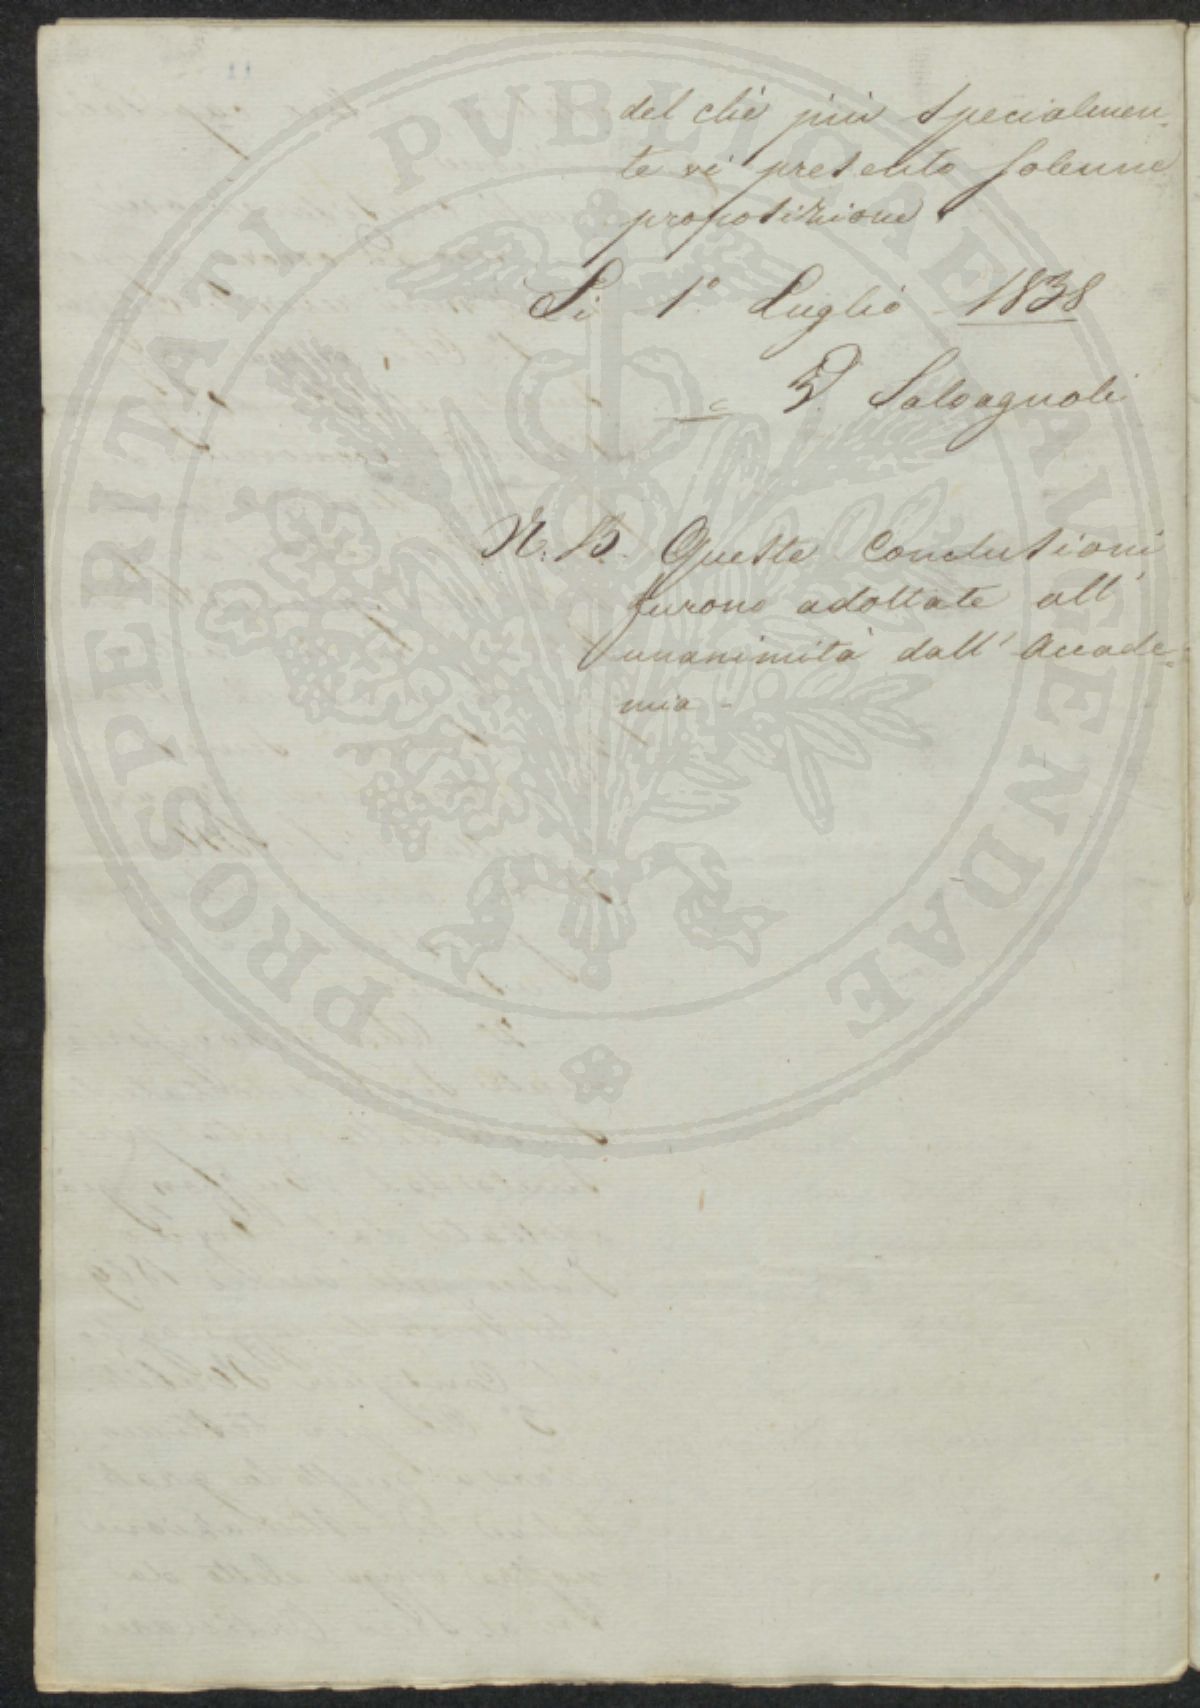 del chè più specialmen-
te vi presento solenne
proposizione.
Li 1° Luglio 1838
Salvagnoli
N. B. Queste Conclusioni
furono adottate all'
unanimità dall' Accade-
mia -
PROSPERITATI PVBLICAE AVGENDAE